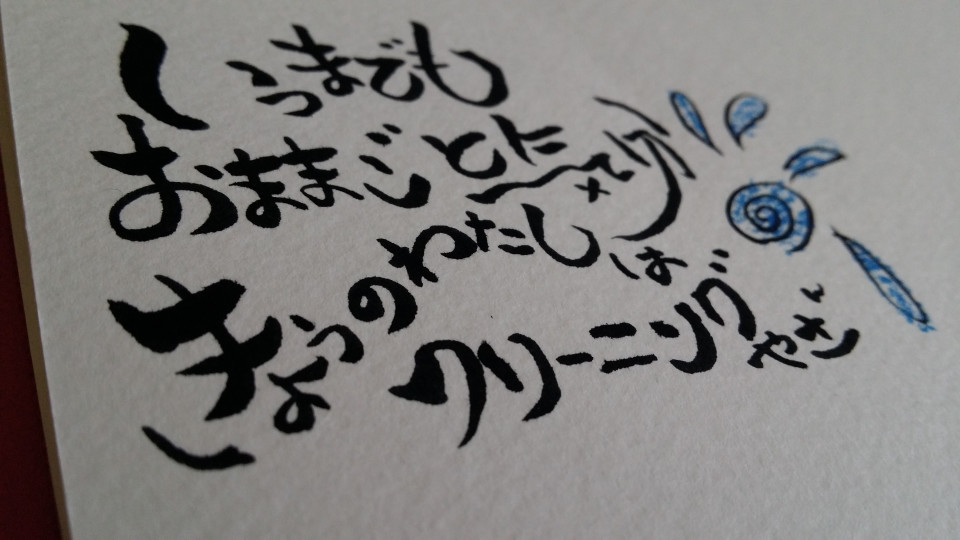 いつまでも
おままごと
きょうのわたしは
クリーニングやさん